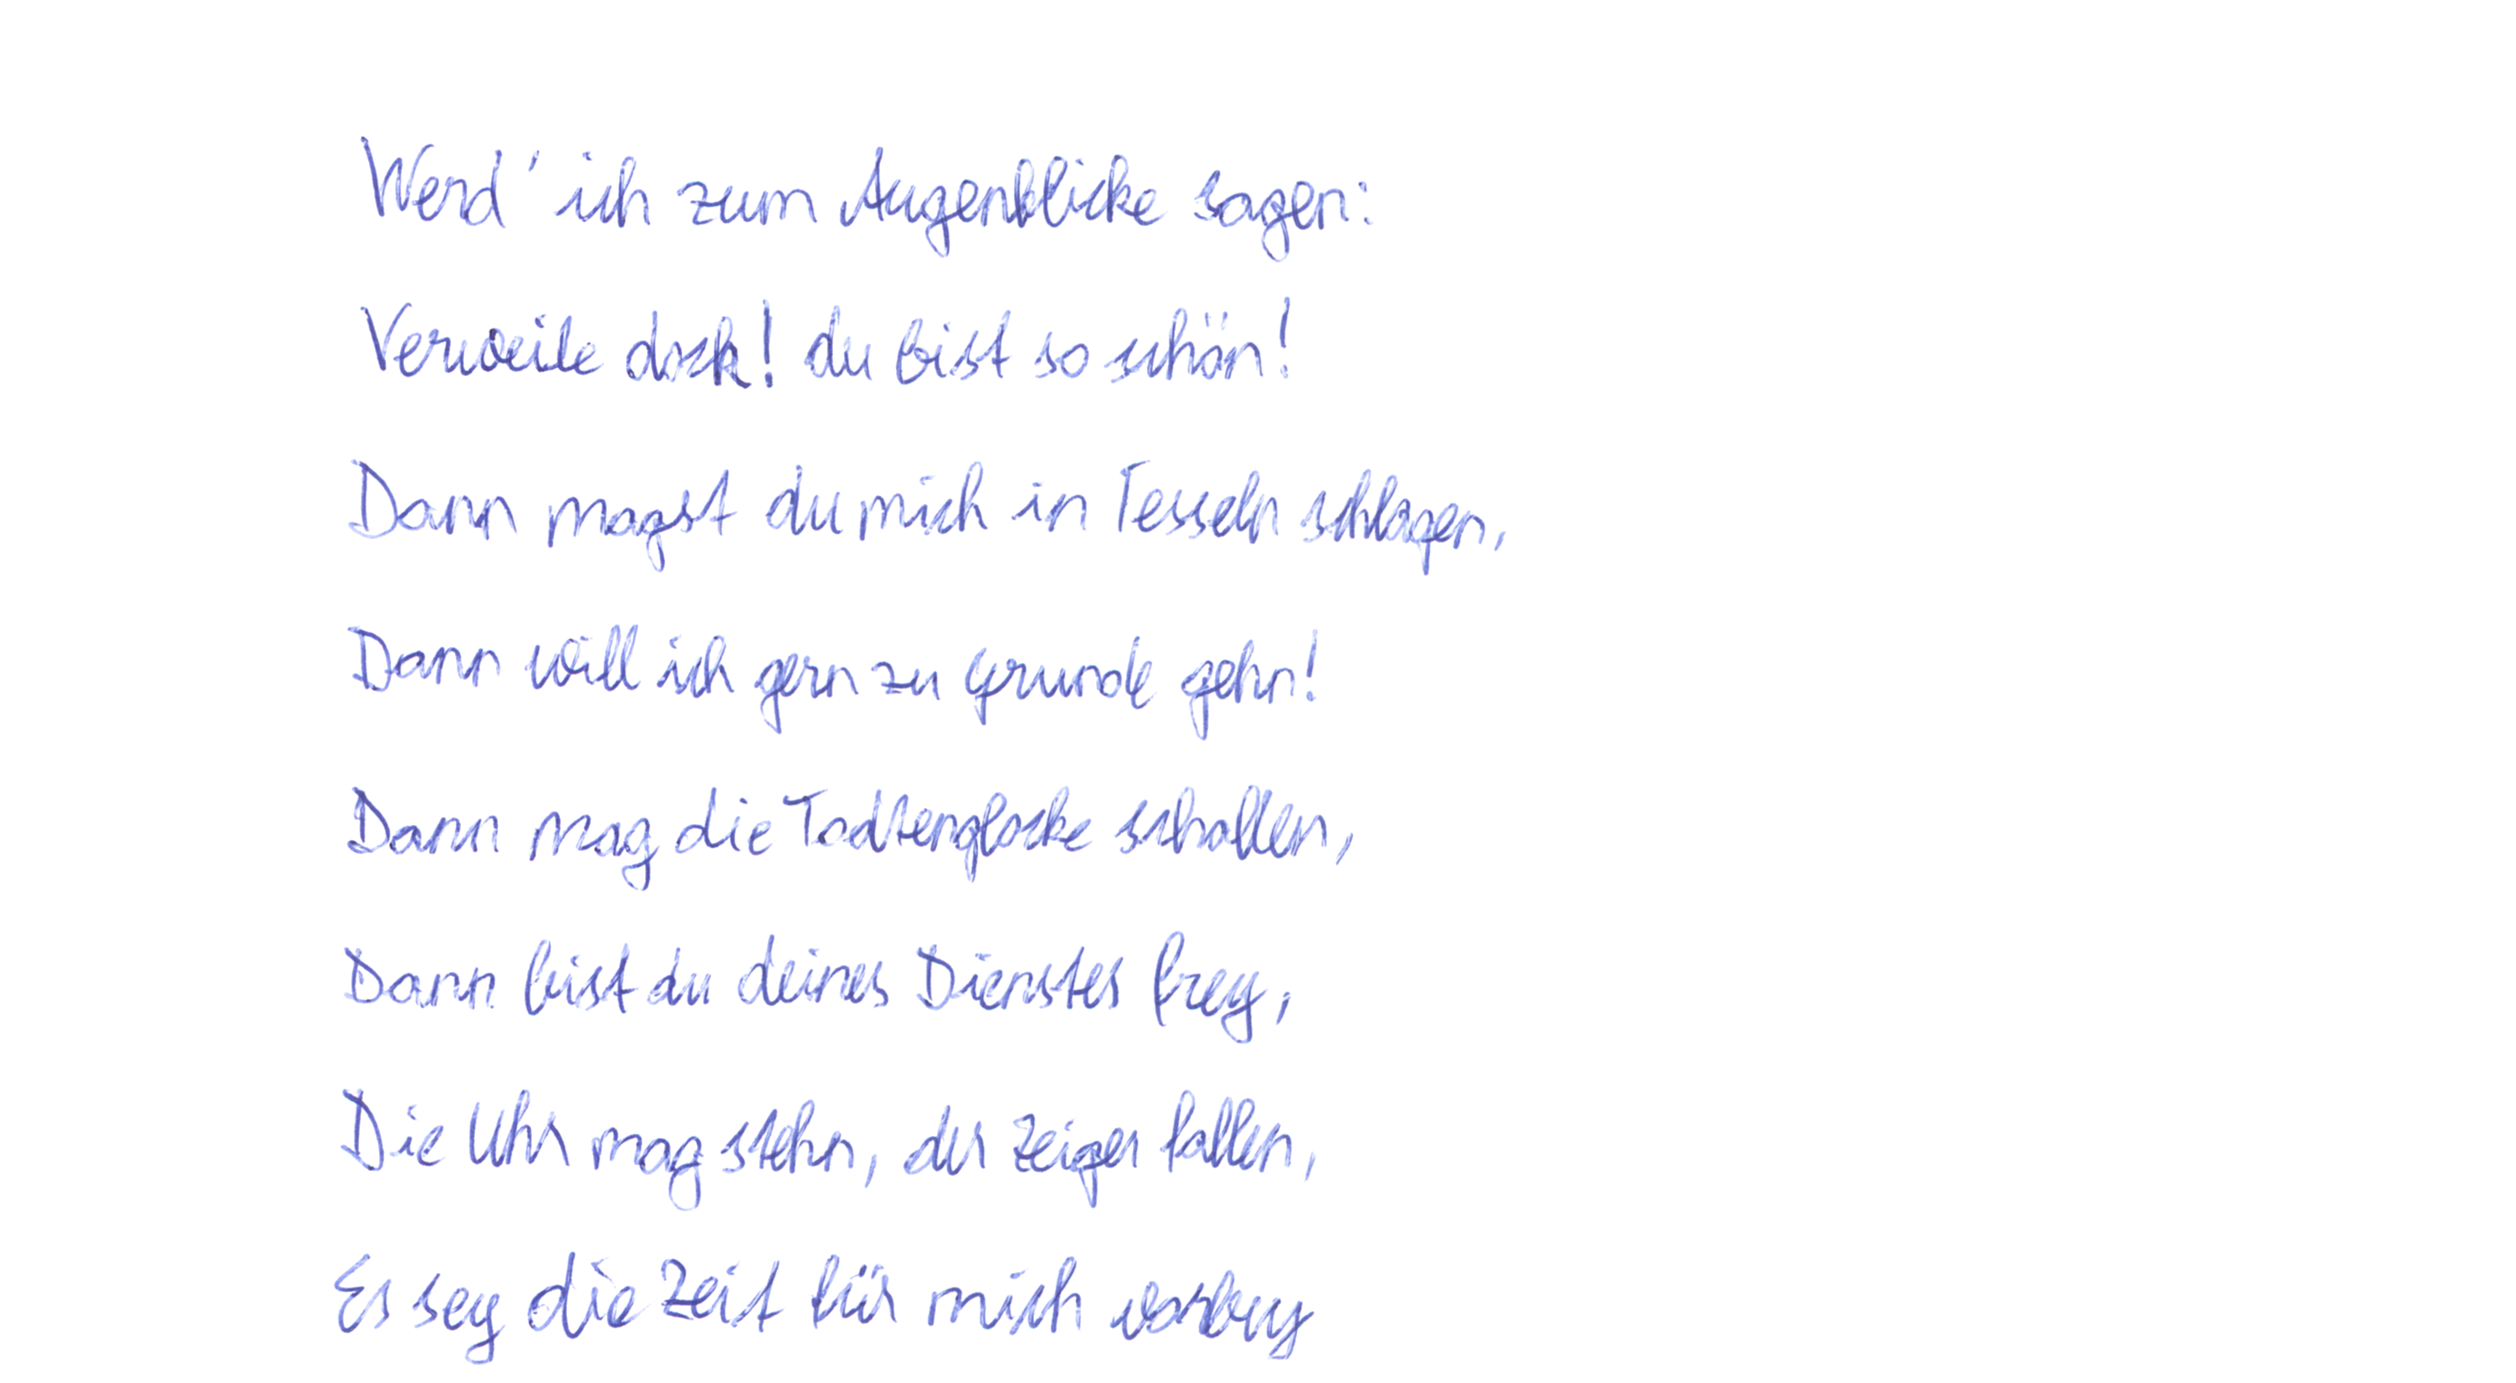 Werd' ich zum Augenblicke sagen:
Verweile doch! du bist so schön!
Dann magst du mich in Fesseln schlagen,
Dann will ich gern zu Grunde gehn!
Dann mag die Todtenglocke schallen,
Dann bist du deines Dienstes frey,
Die Uhr mag stehn, der Zeiger fallen,
Es sey die Zeit für mich vorbey